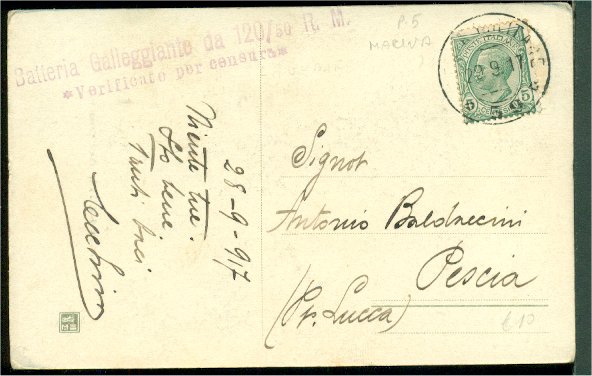 Batteria Galleggiante da 120/50 R. M.
*Verificato per censura*
P.5
MARINA
28-9-917
Niente tue.
Sto bene
Tanti baci
Signor
Antonio Baldaccini
Pescia
(Pr. Lucca)